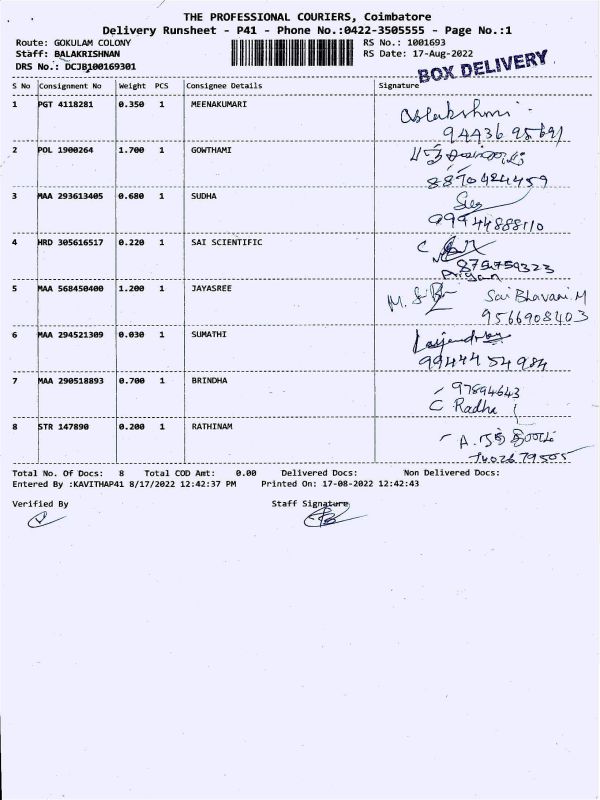 THE PROFESSIONAL COURIERS, Coimbatore
Delivery Runsheet - P41 - Phone No.:0422-3505555 - Page No.:1
Route: GOKULAM COLONY RS No.: 1001693
Staff: BALAKRISHNAN RS Date: 17-Aug-2022
DRS No.: DCJB100169301
BOX DELIVERY
S No Consignment No Weight PCS Consignee Details Signature
1 PGT 4118281 0.350 1 MEENAKUMARI
94436 95691
2 POL 1900264 1.700 1 GOWTHAMI
8870424459
3 MAA 293613405 0.680 1 SUDHA
99944888110
4 HRD 305616517 0.220 1 SAI SCIENTIFIC
5 MAA 568450400 1.200 1 JAYASREE
Sai Bhavani.M
9566908403
6 MAA 294521309 0.030 1 SUMATHI
99444 54984
7 MAA 290518893 0.700 1 BRINDHA
97894643
C Radha
8 STR 147890 0.200 1 RATHINAM
Total No. Of Docs: 8 Total COD Amt: 0.00 Delivered Docs: Non Delivered Docs:
Entered By :KAVITHAP41 8/17/2022 12:42:37 PM Printed On: 17-08-2022 12:42:43
Verified By Staff Signature